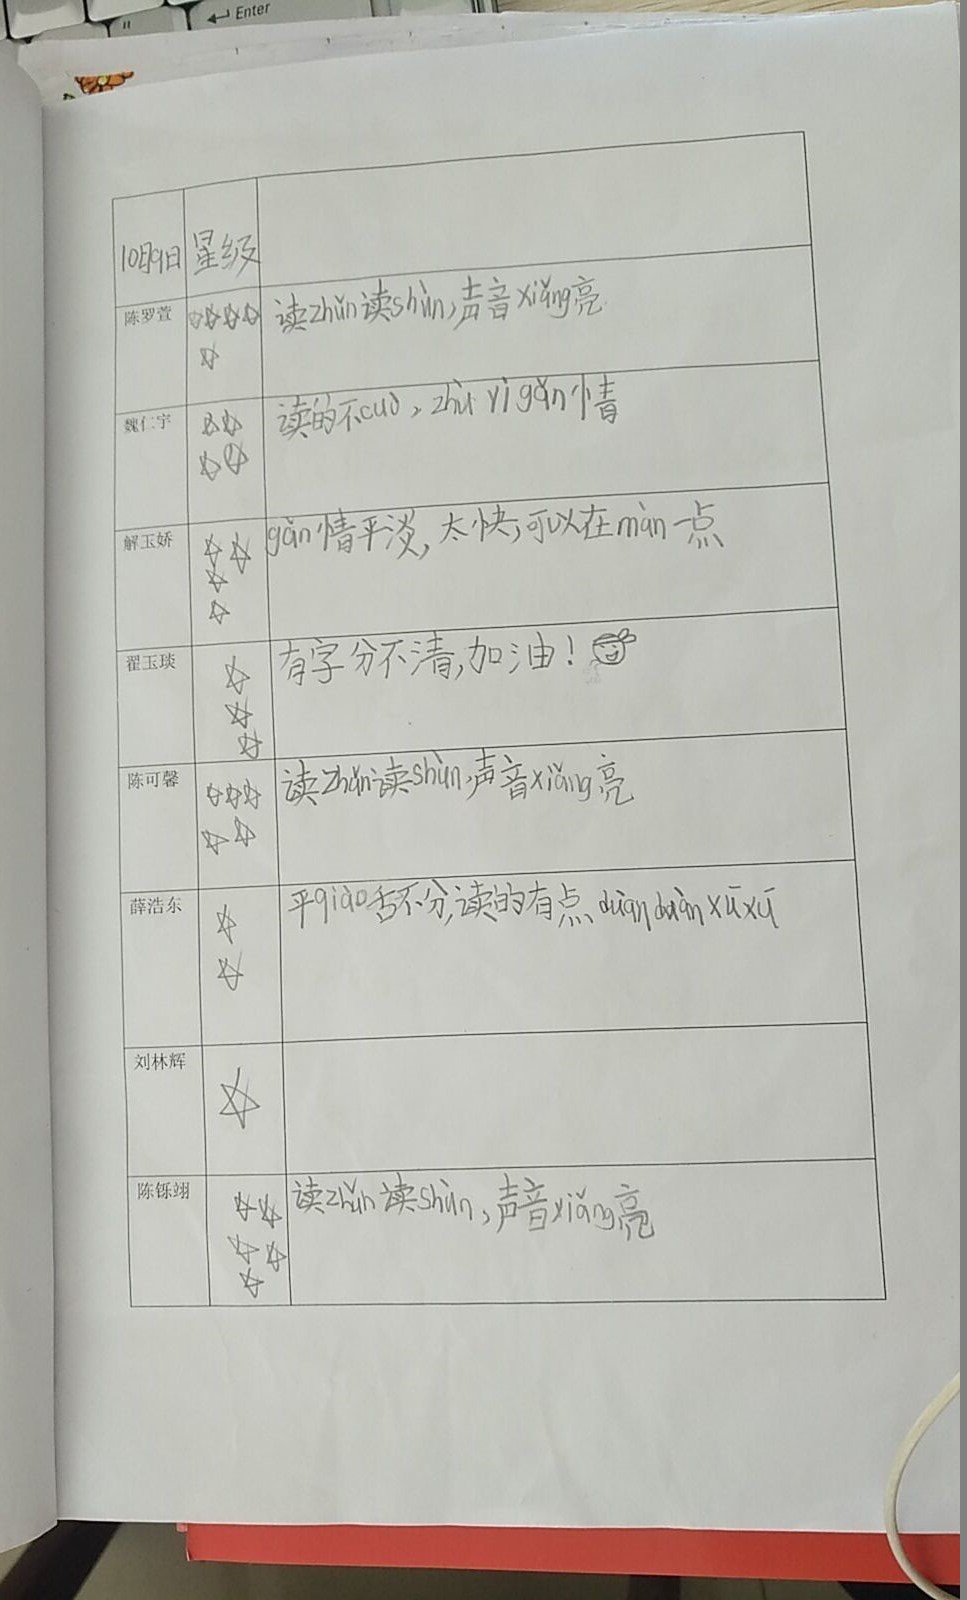 Enter
10月9日 星级
陈罗萱 ☆☆☆☆☆ 读zhǔn读shùn,声音xiǎng亮
魏仁宇 ☆☆☆☆ 读的不cuò,zhù yì gǎn情
解玉娇 ☆☆☆☆ gǎn情平淡,太快,可以在màn一点
翟玉琰 ☆☆☆ 有字分不清,加油!
陈可馨 ☆☆☆☆☆ 读zhǔn读shùn,声音xiǎng亮
薛浩东 ☆☆ 平qiào舌不分,读的有点duàn duàn xū xū
刘林辉 ☆
陈铄翊 ☆☆☆☆☆ 读zhǔn读shùn,声音xiǎng亮